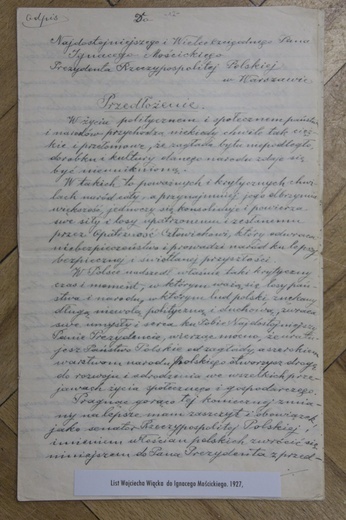 Odpis
Do
Najdostojniejszego i Wielce czcigodnego Pana
Ignacego Mościckiego
Prezydenta Rzeczypospolitej Polskiej
w Warszawie
Przedłożenie.
W życiu politycznem i społecznem państw
i narodów przychodzą niekiedy chwile tak cięż-
kie i przełomowe, że zagłada bytu niepodległego,
dorobku i kultury danego narodu zdaje się
być nieuniknioną.
W takich to poważnych i krytycznych chwi-
lach naród cały a przynajmniej jego olbrzymia
większość, jednoczy się, konsoliduje i powierza
swe siły i losy upatrzonemu i zesłanemu
przez Opatrzność Człowiekowi, który odwraca
niebezpieczeństwo i prowadzi naród ku lepszej
bezpiecznej i świetlanej przyszłości.
W Polsce nadszedł właśnie taki krytyczny
czas i moment, w którym ważą się losy pań-
stwa i narodu, w którym lud polski, znękany
długą niewolą polityczną i duchową, zwraca
swe umysły i serca ku Tobie Najdostojniejszy
Panie Prezydencie, wierząc mocno, że uratu-
jesz Państwo Polskie od zagłady, a szerokim
warstwom narodu polskiego otworzysz drogę
do rozwoju i odrodzenia we wszelkich prze-
jawach życia społecznego i gospodarczego.
Pragnąc gorąco tej koniecznej zmia-
ny na lepsze mam zaszczyt i obowiązek,
jako senator Rzeczypospolitej Polskiej
imieniem włościan polskich zwrócić się
niniejszem do Pana Prezydenta z przed-
List Wojciecha Wiącka do Ignacego Mościckiego. 1927.